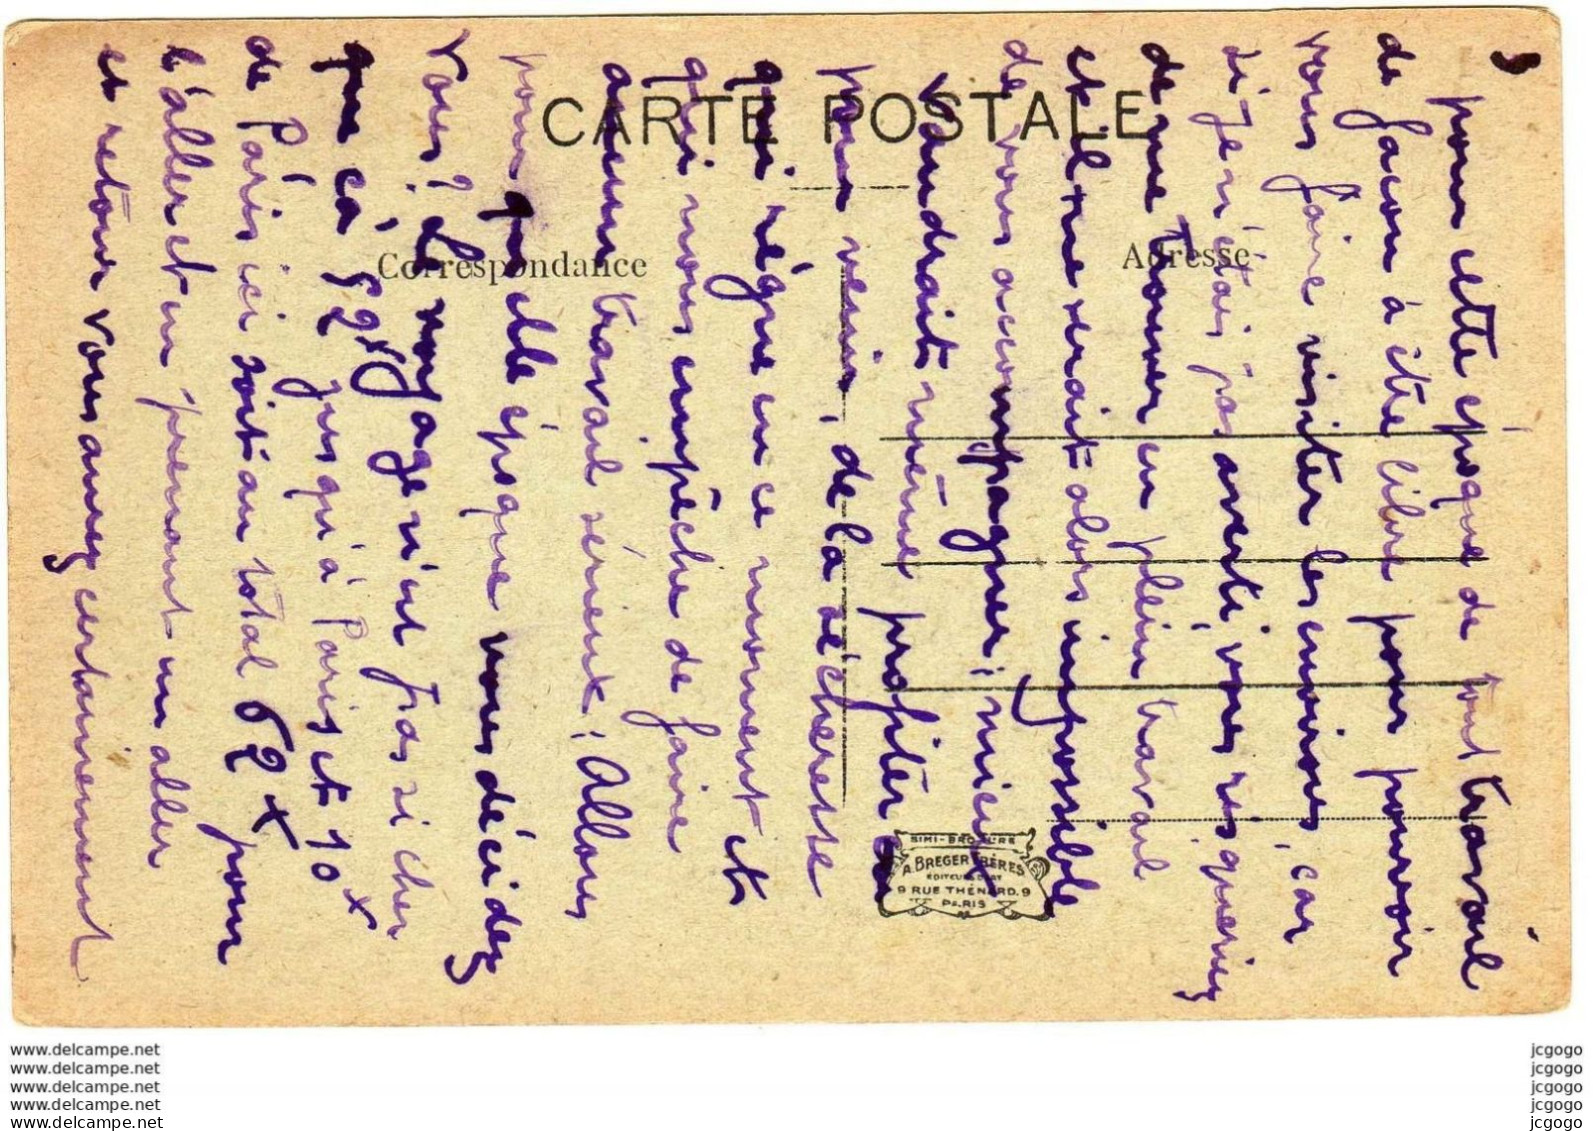 CARTE POSTALE
Correspondance
Adresse
3
pour cette époque de tout travail
de façon à être libre pour pouvoir
vous faire visiter les environs, car
si je n'étais pas averti, vous risqueriez
de me trouver en plein travail
et il me serait alors impossible
de vous accompagner; mieux
vaudrait même profiter
pour venir, de la sécheresse
qui règne en ce moment et
qui nous empêche de faire
aucun travail sérieux; Allons
pour quelle époque vous décidez
vous? Le voyage n'est pas si cher
que ça, 52x jusqu'à Paris et 10x
de Paris ici soit au total 62x pour
l'aller et en prenant un aller
et retour vous aurez certainement
SIMI-BROMURE
A. BREGER FRÈRES
EDITEURS D'ART
9 RUE THÉNARD. 9
PARIS
www.delcampe.net
www.delcampe.net
www.delcampe.net
www.delcampe.net
www.delcampe.net
jcgogo
jcgogo
jcgogo
jcgogo
jcgogo